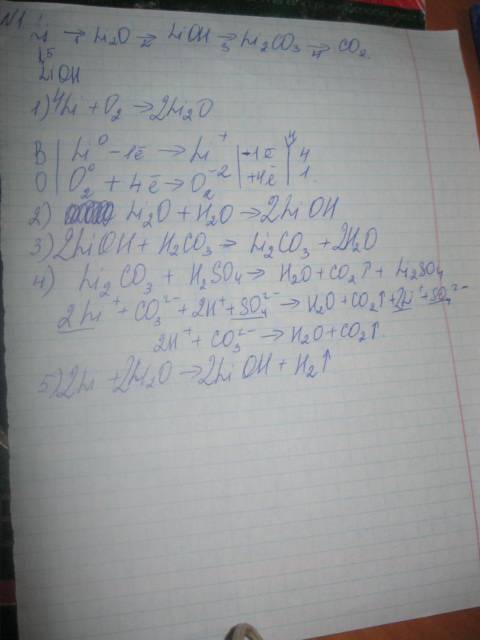 N1
Li →1 Li₂O →2 LiOH →3 Li₂CO₃ →4 CO₂.
↓5
LiOH
1) 4Li + O₂ → 2Li₂O
В | Li⁰ - 1ē → Li⁺ | -1ē | 4 | 4
О | O₂⁰ + 4ē → O₂⁻² | +4ē | 1
2) Li₂O + H₂O → 2LiOH
3) 2LiOH + H₂CO₃ → Li₂CO₃ + 2H₂O
4) Li₂CO₃ + H₂SO₄ → H₂O + CO₂↑ + Li₂SO₄
2Li⁺ + CO₃²⁻ + 2H⁺ + SO₄²⁻ → H₂O + CO₂↑ + 2Li⁺ + SO₄²⁻
2H⁺ + CO₃²⁻ → H₂O + CO₂↑.
5) 2Li + 2H₂O → 2LiOH + H₂↑